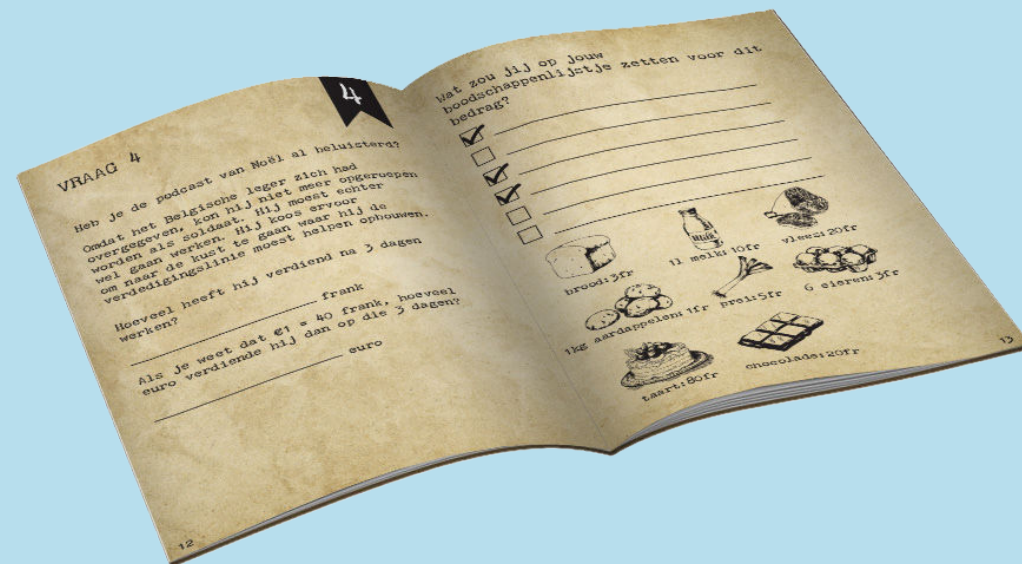 4
VRAAG 4
Heb je de podcast van Noël al beluisterd?
Omdat het Belgische leger zich had
overgegeven, kon hij niet meer opgeroepen
worden als soldaat. Hij moest echter
wel gaan werken. Hij koos ervoor
om naar de kust te gaan waar hij de
verdedigingslinie moest helpen opbouwen.
Hoeveel heeft hij verdiend na 3 dagen
werken?
frank
Als je weet dat €1 = 40 frank, hoeveel
euro verdiende hij dan op die 3 dagen?
euro
12
Wat zou jij op jouw
boodschappenlijstje zetten voor dit
bedrag?
brood: 3fr
MILK
1l melk: 10fr
vlees: 20fr
1kg aardappelen: 1fr
prei: 5fr
6 eieren: 3fr
taart: 80fr
chocolade: 20fr
13